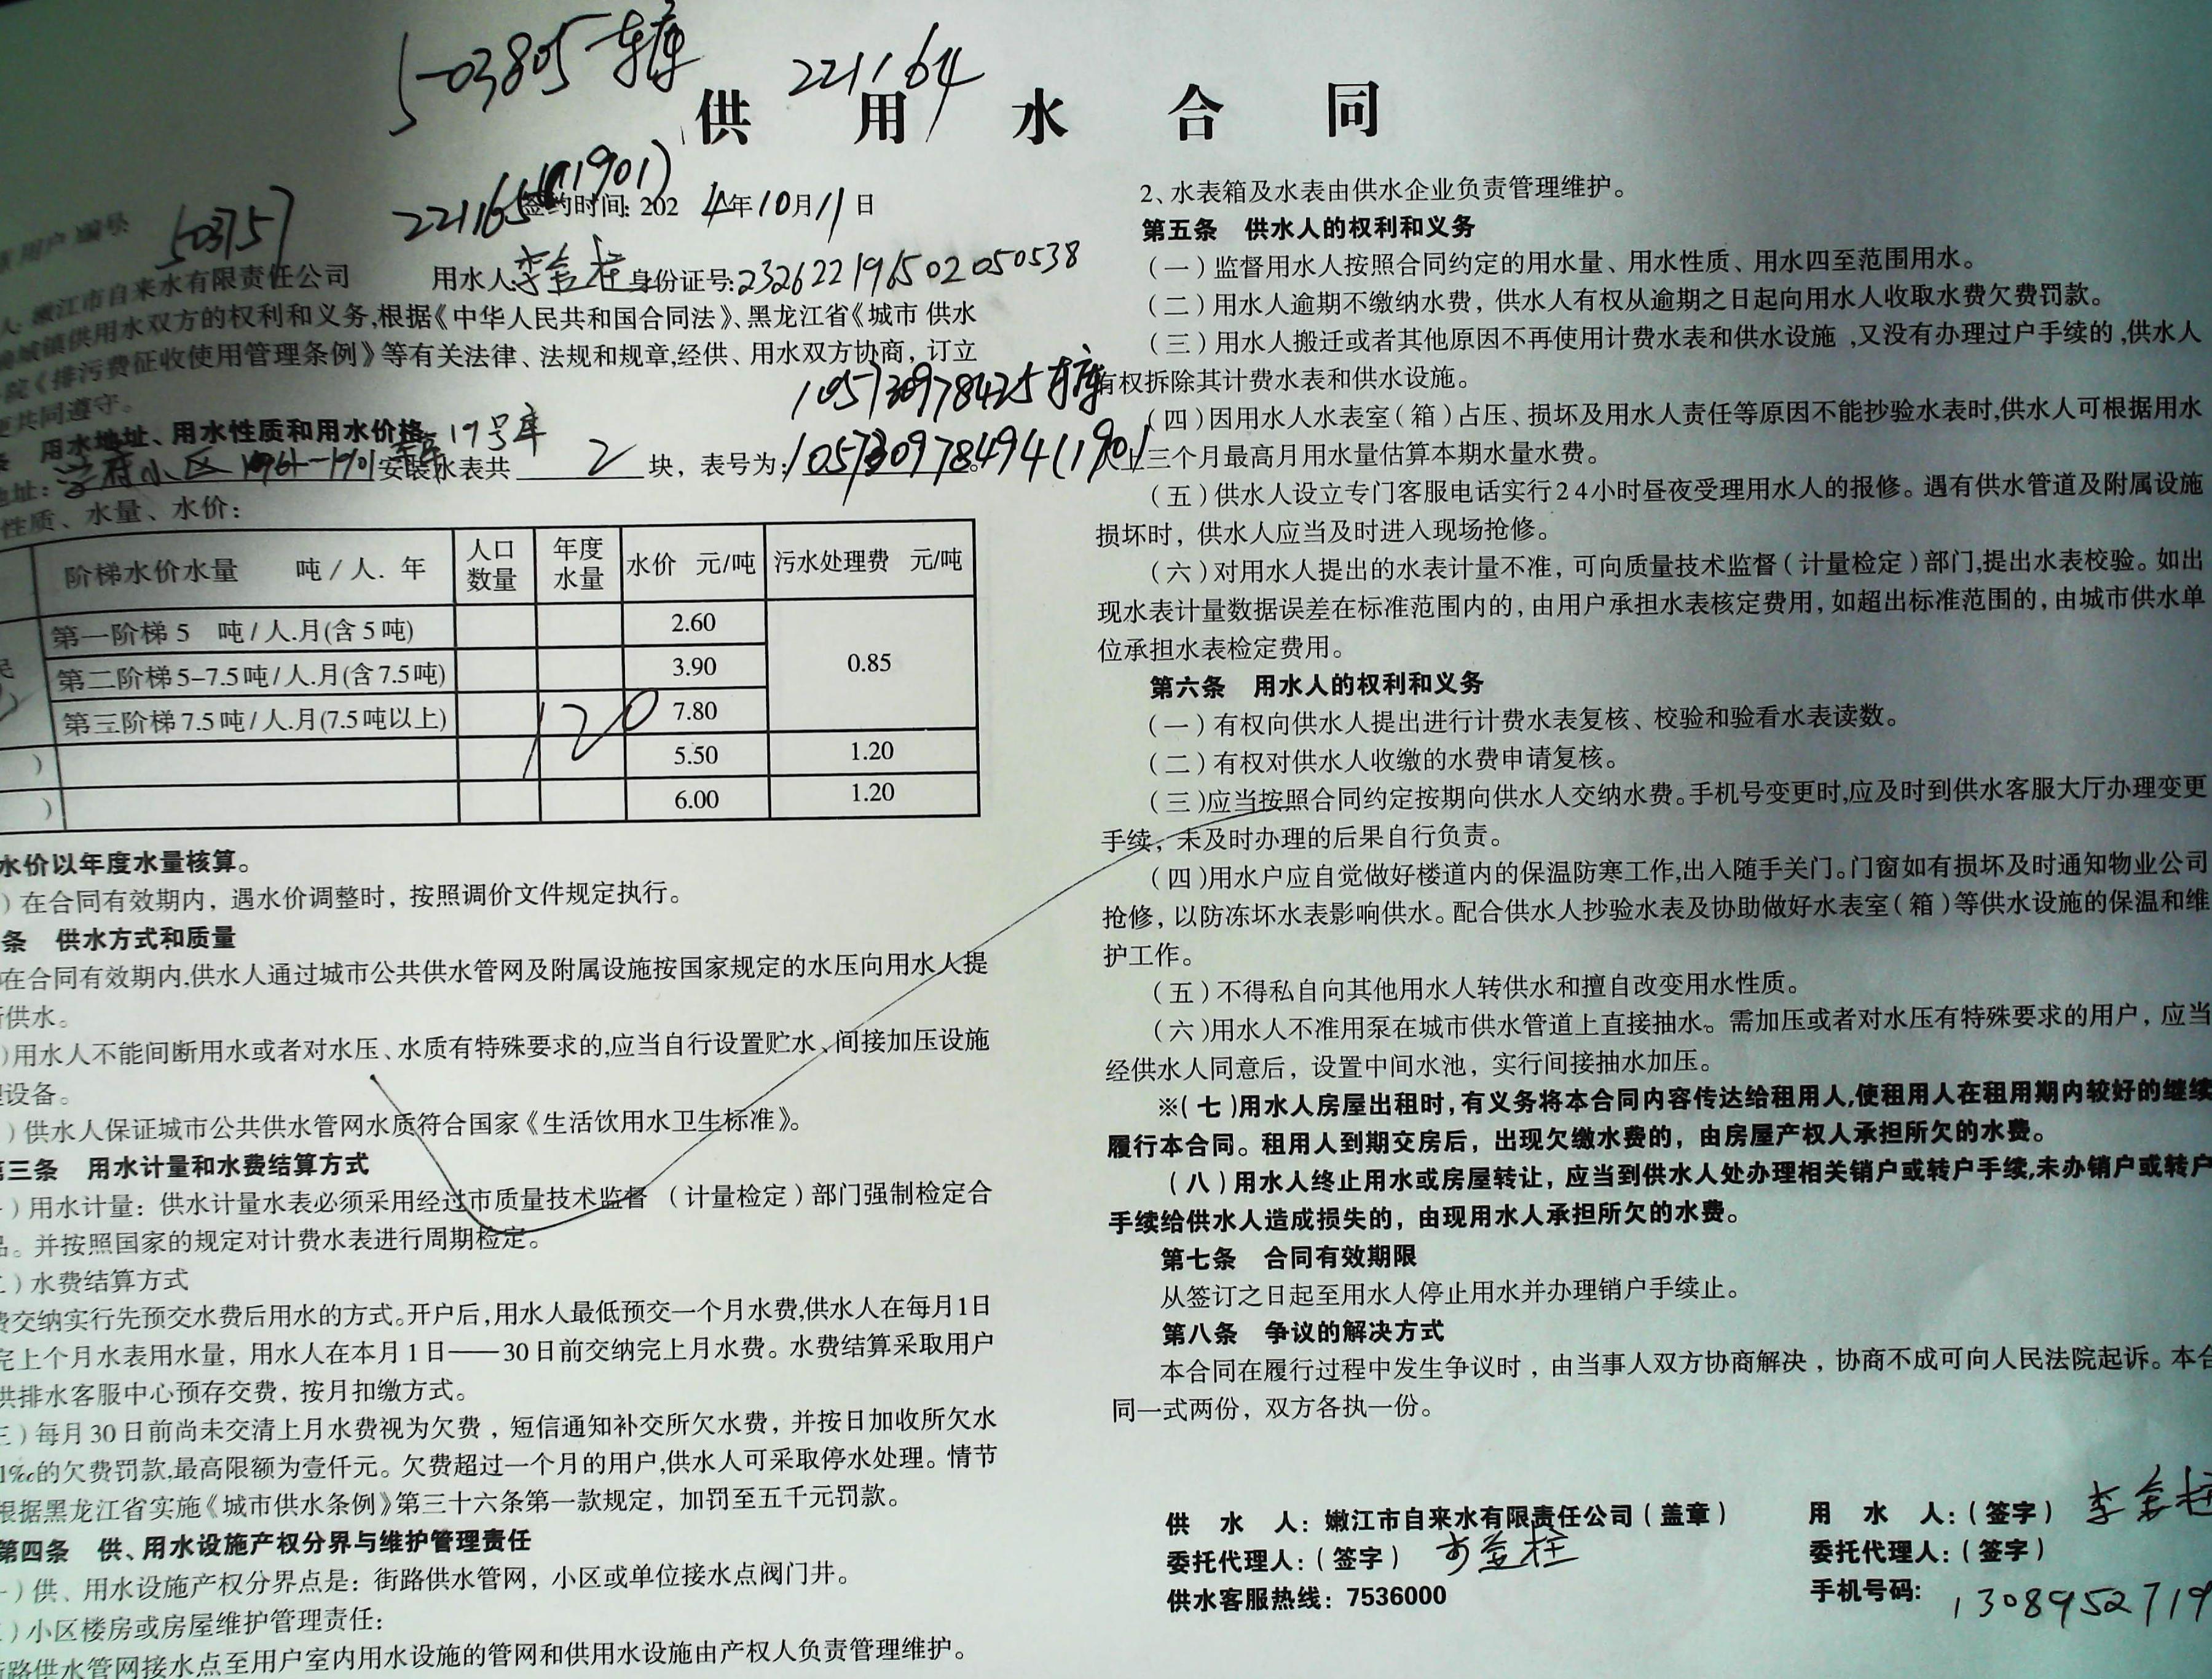 5-03805 车库
221164
供用水合同
221165(1901)
签约时间: 2024年10月11日
用户编号 503757
嫩江市自来水有限责任公司 用水人:李金柱 身份证号:232622196502050538
城镇供用水双方的权利和义务,根据《中华人民共和国合同法》、黑龙江省《城市 供水
院《排污费征收使用管理条例》等有关法律、法规和规章,经供、用水双方协商，订立
共同遵守。
用水地址、用水性质和用水价格
地址: 小区 1901 19号库 安装水表共 2 块，表号为:
车库
(1901)
性质、水量、水价:
阶梯水价水量 吨/人. 年 人口数量 年度水量 水价 元/吨 污水处理费 元/吨
第一阶梯5 吨/人.月(含5吨) 2.60 0.85
第二阶梯5-7.5吨/人.月(含7.5吨) 3.90
第三阶梯7.5吨/人.月(7.5吨以上) 120 7.80
) 5.50 1.20
) 6.00 1.20
水价以年度水量核算。
)在合同有效期内，遇水价调整时，按照调价文件规定执行。
条 供水方式和质量
在合同有效期内,供水人通过城市公共供水管网及附属设施按国家规定的水压向用水人提
供水。
)用水人不能间断用水或者对水压、水质有特殊要求的,应当自行设置贮水、间接加压设施
设备。
)供水人保证城市公共供水管网水质符合国家《生活饮用水卫生标准》。
第三条 用水计量和水费结算方式
)用水计量：供水计量水表必须采用经过市质量技术监督（计量检定）部门强制检定合
品。并按照国家的规定对计费水表进行周期检定。
)水费结算方式
费交纳实行先预交水费后用水的方式。开户后,用水人最低预交一个月水费,供水人在每月1日
完上个月水表用水量，用水人在本月1日——30日前交纳完上月水费。水费结算采取用户
供排水客服中心预存交费，按月扣缴方式。
三)每月30日前尚未交清上月水费视为欠费，短信通知补交所欠水费，并按日加收所欠水
1‰的欠费罚款,最高限额为壹仟元。欠费超过一个月的用户,供水人可采取停水处理。情节
根据黑龙江省实施《城市供水条例》第三十六条第一款规定，加罚至五千元罚款。
第四条 供、用水设施产权分界与维护管理责任
)供、用水设施产权分界点是：街路供水管网，小区或单位接水点阀门井。
)小区楼房或房屋维护管理责任:
街路供水管网接水点至用户室内用水设施的管网和供用水设施由产权人负责管理维护。
2、水表箱及水表由供水企业负责管理维护。
第五条 供水人的权利和义务
（一）监督用水人按照合同约定的用水量、用水性质、用水四至范围用水。
（二）用水人逾期不缴纳水费，供水人有权从逾期之日起向用水人收取水费欠费罚款。
（三）用水人搬迁或者其他原因不再使用计费水表和供水设施,又没有办理过户手续的,供水人
有权拆除其计费水表和供水设施。
（四）因用水人水表室（箱）占压、损坏及用水人责任等原因不能抄验水表时,供水人可根据用水
上三个月最高月用水量估算本期水量水费。
（五）供水人设立专门客服电话实行24小时昼夜受理用水人的报修。遇有供水管道及附属设施
损坏时，供水人应当及时进入现场抢修。
（六）对用水人提出的水表计量不准，可向质量技术监督（计量检定）部门,提出水表校验。如出
现水表计量数据误差在标准范围内的，由用户承担水表核定费用，如超出标准范围的，由城市供水单
位承担水表检定费用。
第六条 用水人的权利和义务
（一）有权向供水人提出进行计费水表复核、校验和验看水表读数。
（二）有权对供水人收缴的水费申请复核。
（三）应当按照合同约定按期向供水人交纳水费。手机号变更时,应及时到供水客服大厅办理变更
手续，未及时办理的后果自行负责。
（四）用水户应自觉做好楼道内的保温防寒工作,出入随手关门。门窗如有损坏及时通知物业公司
抢修，以防冻坏水表影响供水。配合供水人抄验水表及协助做好水表室（箱）等供水设施的保温和维
护工作。
（五）不得私自向其他用水人转供水和擅自改变用水性质。
（六）用水人不准用泵在城市供水管道上直接抽水。需加压或者对水压有特殊要求的用户，应当
经供水人同意后，设置中间水池，实行间接抽水加压。
※（七）用水人房屋出租时,有义务将本合同内容传达给租用人,使租用人在租用期内较好的继续
履行本合同。租用人到期交房后，出现欠缴水费的，由房屋产权人承担所欠的水费。
（八）用水人终止用水或房屋转让，应当到供水人处办理相关销户或转户手续,未办销户或转户
手续给供水人造成损失的，由现用水人承担所欠的水费。
第七条 合同有效期限
从签订之日起至用水人停止用水并办理销户手续止。
第八条 争议的解决方式
本合同在履行过程中发生争议时，由当事人双方协商解决，协商不成可向人民法院起诉。本合
同一式两份，双方各执一份。
供 水 人：嫩江市自来水有限责任公司（盖章） 用 水 人:（签字） 李金柱
委托代理人:（签字） 李金柱 委托代理人:（签字）
供水客服热线：7536000 手机号码: 1308952719